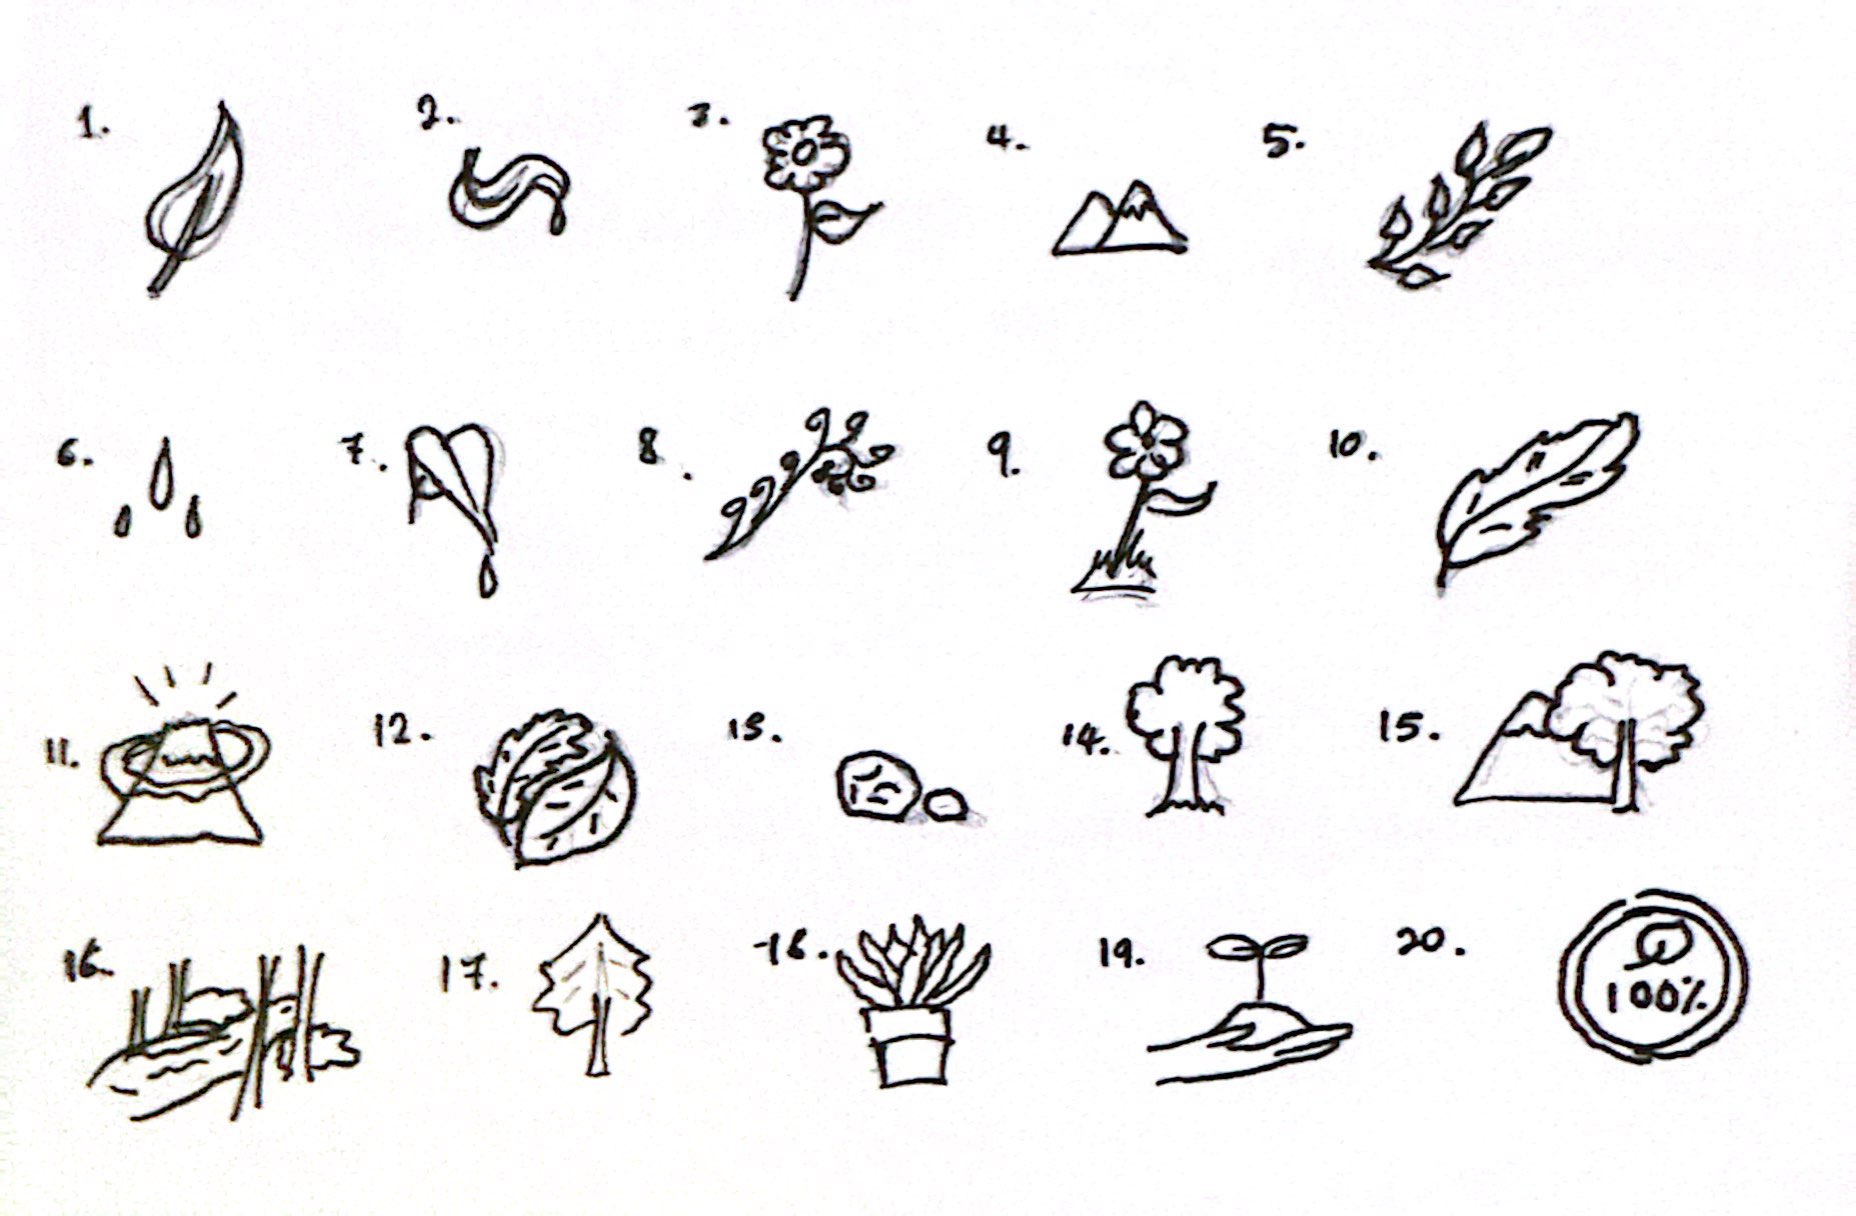 1. 2. 3. 4. 5.
6. 7. 8. 9. 10.
11. 12. 13. 14. 15.
16. 17. 18. 19. 20.
100%